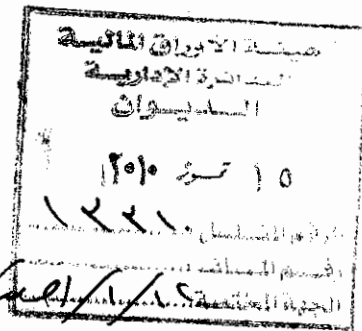 هيئة الأوراق المالية
الدائرة الإدارية
الديوان
١٥ تموز ٢٠١٠
الرقم المتسلسل
رقم الملف
الجهة المختصة